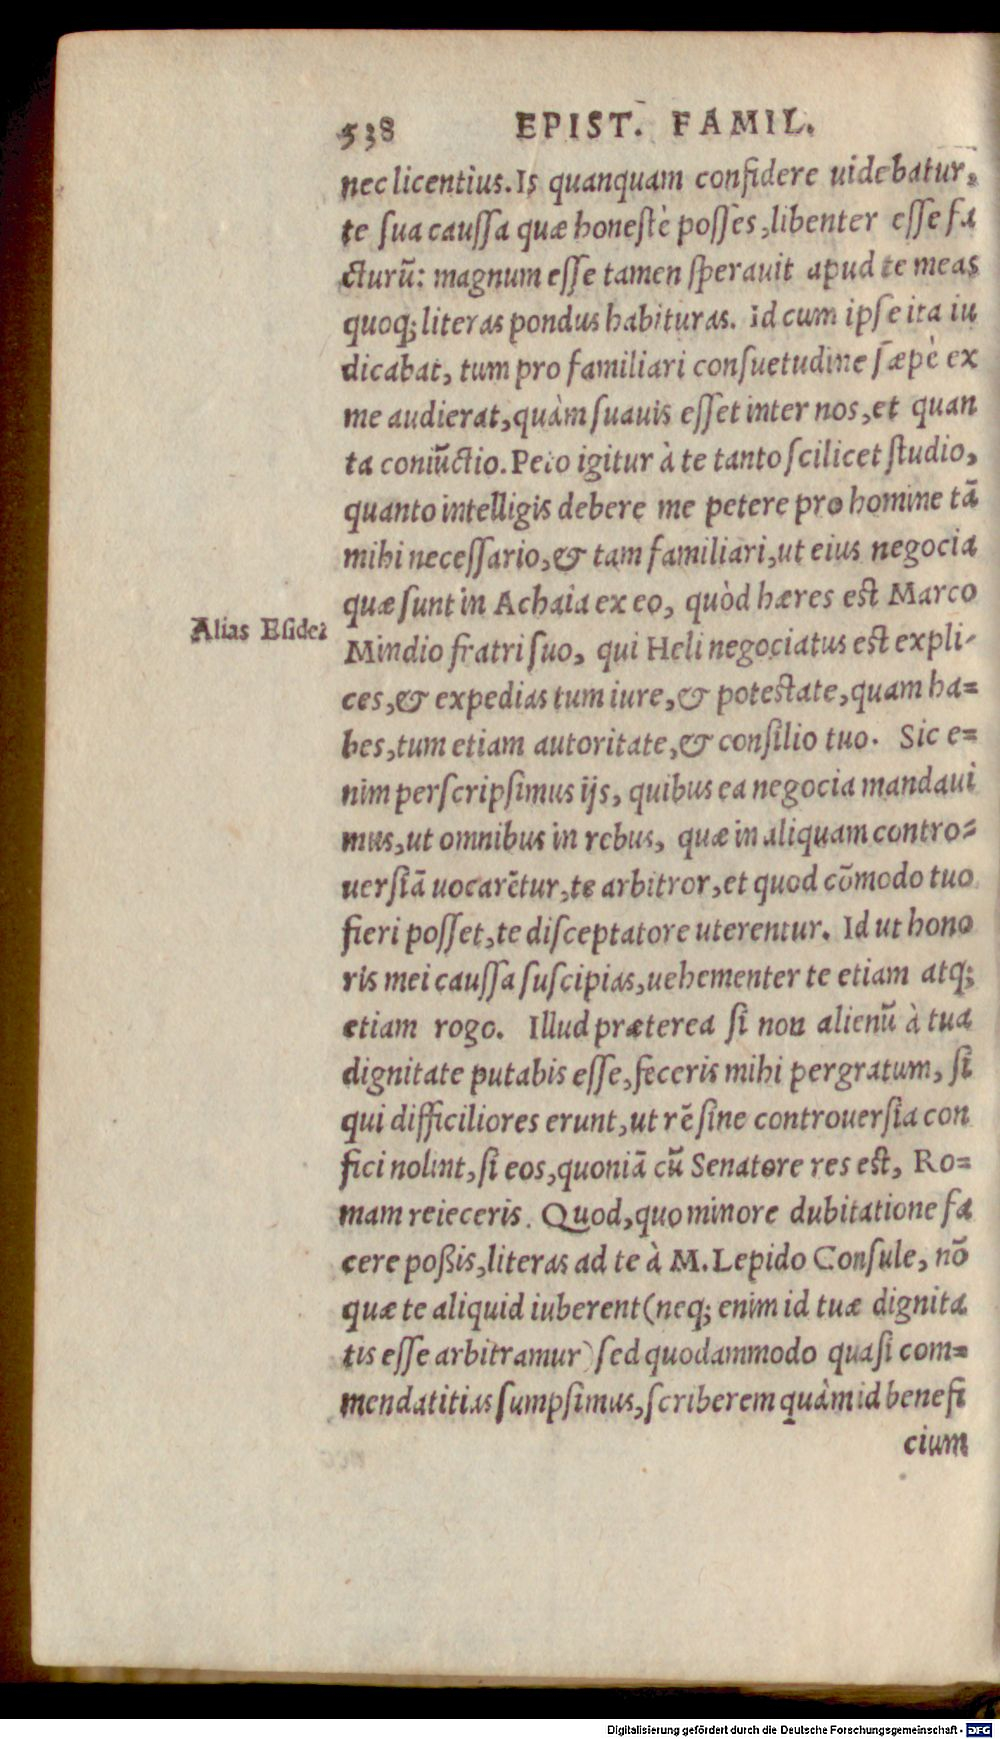 538 EPIST. FAMIL.
nec licentius. Is quanquam confidere uidebatur,
te sua caussa quæ honestè posses, libenter esse fa
cturũ: magnum esse tamen sperauit apud te meas
quoq; literas pondus habituras. Id cum ipse ita iu
dicabat, tum pro familiari consuetudine sæpè ex
me audierat, quàm suauis esset inter nos, et quan
ta coniũctio. Peto igitur à te tanto scilicet studio,
quanto intelligis debere me petere pro homine tã
mihi necessario, & tam familiari, ut eius negocia
quæ sunt in Achaia ex eo, quòd hæres est Marco
Alias Esidez
Mindio fratri suo, qui Heli negociatus est expli-
ces, & expedias tum iure, & potestate, quam ha=
bes, tum etiam autoritate, & consilio tuo. Sic e=
nim perscripsimus ijs, quibus ea negocia mandaui
mus, ut omnibus in rebus, quæ in aliquam contro=
uersiã uocarẽtur, te arbitror, et quod cõmodo tuo
fieri posset, te disceptatore uterentur. Id ut hono
ris mei caussa suscipias, uehementer te etiam atq;
etiam rogo. Illud præterea si non alienũ à tua
dignitate putabis esse, feceris mihi pergratum, si
qui difficiliores erunt, ut rẽ sine controuersia con
fici nolint, si eos, quoniã cũ Senatore res est, Ro=
mam reieceris. Quod, quo minore dubitatione fa
cere poßis, literas ad te à M. Lepido Consule, nõ
quæ te aliquid iuberent (neq; enim id tuæ dignita
tis esse arbitramur) sed quodammodo quasi com=
mendatitias sumpsimus, scriberem quàm id benefi
cium
Digitalisierung gefördert durch die Deutsche Forschungsgemeinschaft - DFG